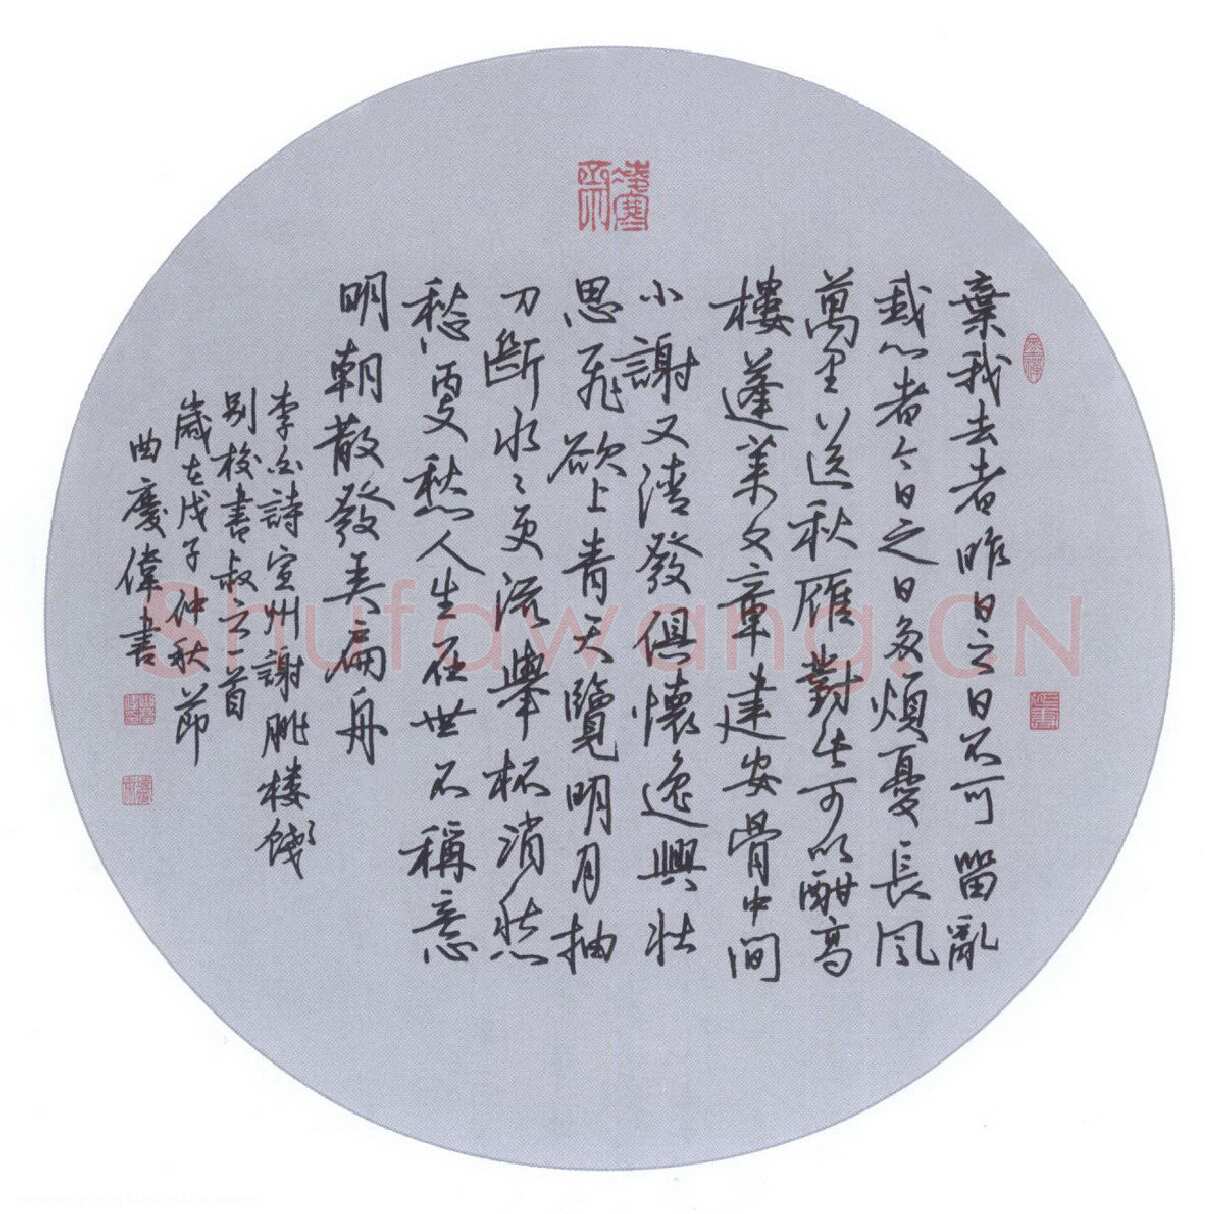 棄我去者昨日之日不可留亂
我心者今日之日多煩憂長風
萬里送秋雁對此可以酣高
樓蓬萊文章建安骨中間
小謝又清發俱懷逸興壯
思飛欲上青天覽明月抽
刀斷水〻更流舉杯消愁
愁更愁人生在世不稱意
明朝散發弄扁舟
李白詩宣州謝朓楼餞
别校書叔云一首
歲在戊子仲秋節
曲慶偉書
Shufawang.CN